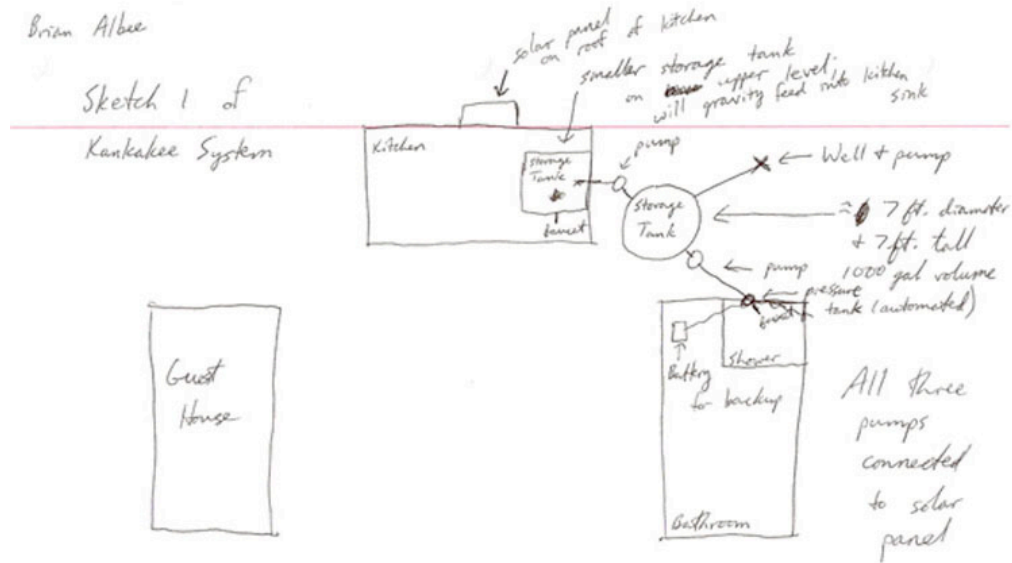 Brian Albee
Sketch 1 of
Kankakee System
solar panel
on roof of kitchen
smaller storage tank
on upper level,
will gravity feed into kitchen
sink
Kitchen
Storage
Tank
faucet
pump
Well + pump
Storage
Tank
≈ 7 ft. diameter
+ 7 ft. tall
1000 gal volume
pump
pressure
tank (automated)
faucet
Shower
Battery
for backup
Bathroom
Guest
House
All three
pumps
connected
to solar
panel